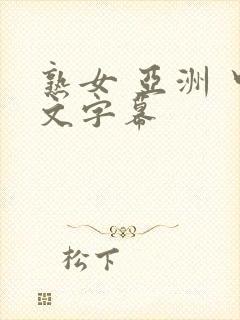 熟女 亞洲 中
文字幕
松下